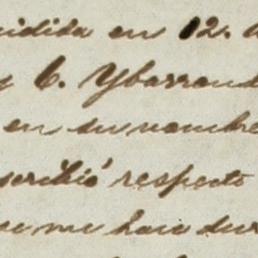 cidida en 12. d
y C. Ybarrond
en su nombre
scribió respecto
se me hace dur